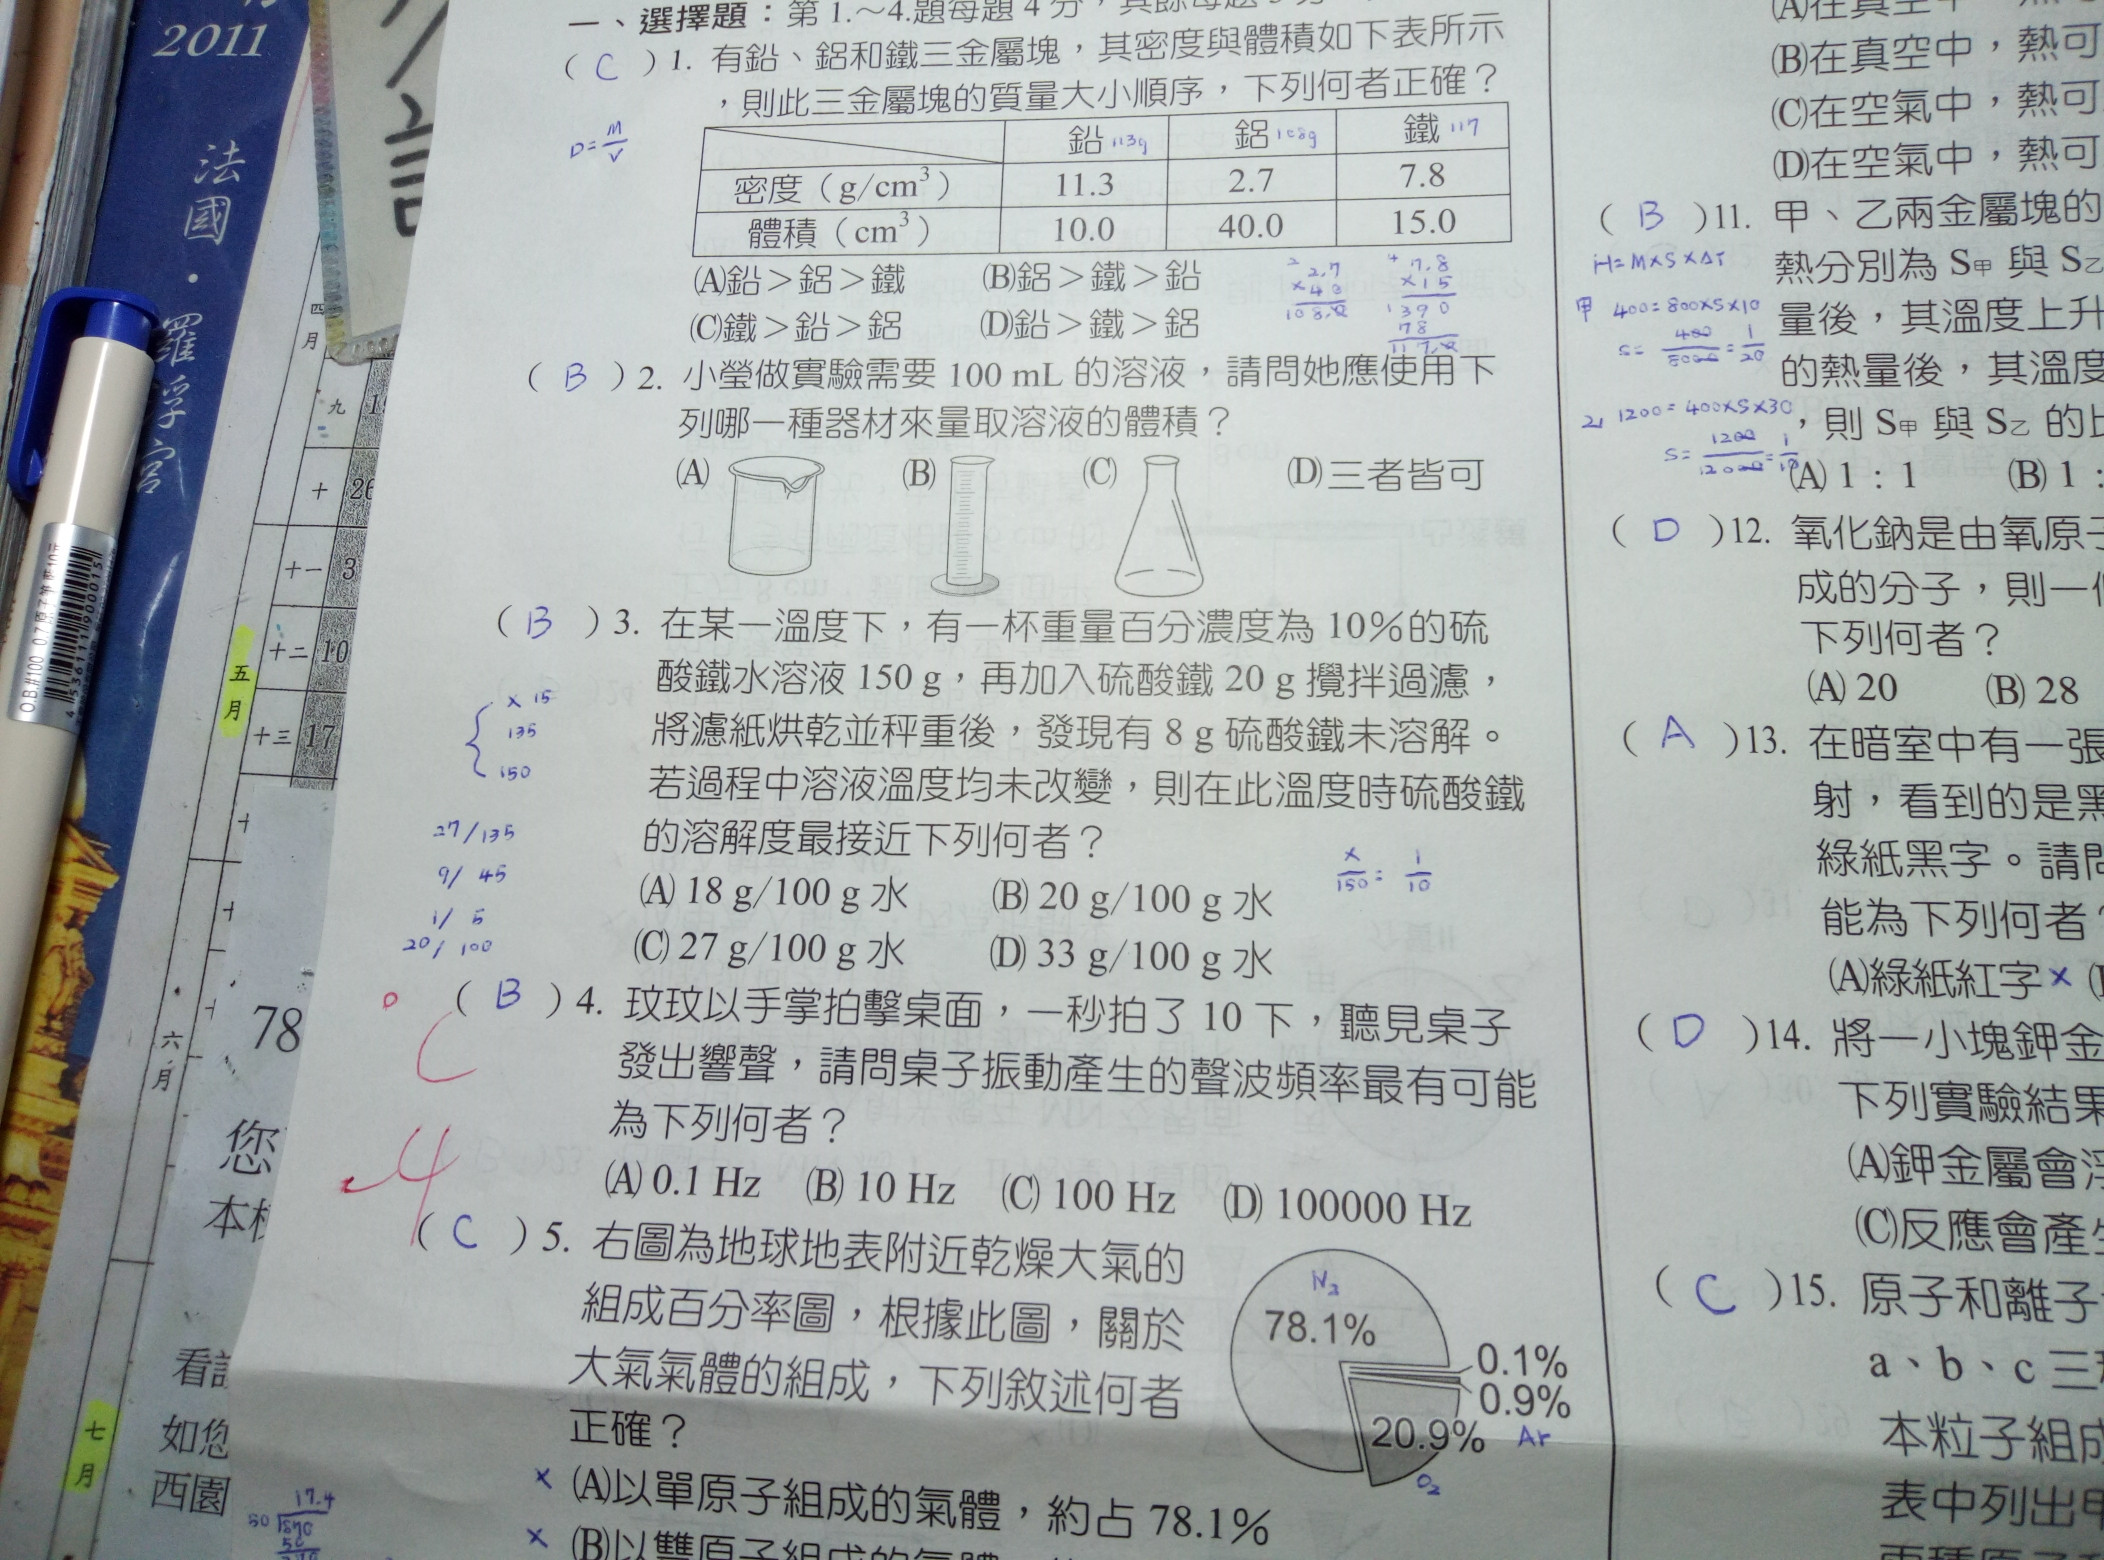 2011
法國・羅浮宮
O.B.#100 0.7
四月
九
十
26
十一
3
十二
10
十三
17
五月
六月
七月
78
您
看
如您
西園
一、選擇題：第1.～4.題每題4分，其餘每題
( C ) 1. 有鉛、鋁和鐵三金屬塊，其密度與體積如下表所示
，則此三金屬塊的質量大小順序，下列何者正確？
D=M/V
鉛 113g 鋁 108g 鐵 117
密度（g/cm³） 11.3 2.7 7.8
體積（cm³） 10.0 40.0 15.0
(A)鉛＞鋁＞鐵 (B)鋁＞鐵＞鉛
(C)鐵＞鉛＞鋁 (D)鉛＞鐵＞鋁
2.7
×40
108.0
7.8
×15
390
78
117.0
( B ) 2. 小瑩做實驗需要 100 mL 的溶液，請問她應使用下
列哪一種器材來量取溶液的體積？
(A) (B) (C) (D)三者皆可
( B ) 3. 在某一溫度下，有一杯重量百分濃度為 10%的硫
酸鐵水溶液 150 g，再加入硫酸鐵 20 g 攪拌過濾，
將濾紙烘乾並秤重後，發現有 8 g 硫酸鐵未溶解。
若過程中溶液溫度均未改變，則在此溫度時硫酸鐵
的溶解度最接近下列何者？
x 15
135
150
27/135
9/45
1/5
20/100
x/150=1/10
(A) 18 g/100 g 水 (B) 20 g/100 g 水
(C) 27 g/100 g 水 (D) 33 g/100 g 水
( B ) 4. 玟玟以手掌拍擊桌面，一秒拍了 10 下，聽見桌子
發出響聲，請問桌子振動產生的聲波頻率最有可能
為下列何者？
C
-4
(A) 0.1 Hz (B) 10 Hz (C) 100 Hz (D) 100000 Hz
( C ) 5. 右圖為地球地表附近乾燥大氣的
組成百分率圖，根據此圖，關於
大氣氣體的組成，下列敘述何者
正確？
N₂
78.1%
0.1%
0.9%
Ar
20.9%
O₂
× (A)以單原子組成的氣體，約占 78.1%
× (B)以雙原子組成的氣體
17.4
50
(A)在真空中
(B)在真空中，熱可
(C)在空氣中，熱可
(D)在空氣中，熱可
( B ) 11. 甲、乙兩金屬塊的
熱分別為 S甲 與 S乙
量後，其溫度上升
的熱量後，其溫度
，則 S甲 與 S乙 的比
H=M×S×ΔT
甲 400=800×S×10
S=400/8000=1/20
乙 1200=400×S×30
S=1200/12000=1/10
(A) 1：1 (B) 1：
( D ) 12. 氧化鈉是由氧原子
成的分子，則一
下列何者？
(A) 20 (B) 28
( A ) 13. 在暗室中有一張
射，看到的是黑
綠紙黑字。請問
能為下列何者？
(A)綠紙紅字 ×
( D ) 14. 將一小塊鉀金
下列實驗結果
(A)鉀金屬會浮
(C)反應會產生
( C ) 15. 原子和離子
a、b、c 三
本粒子組成
表中列出甲